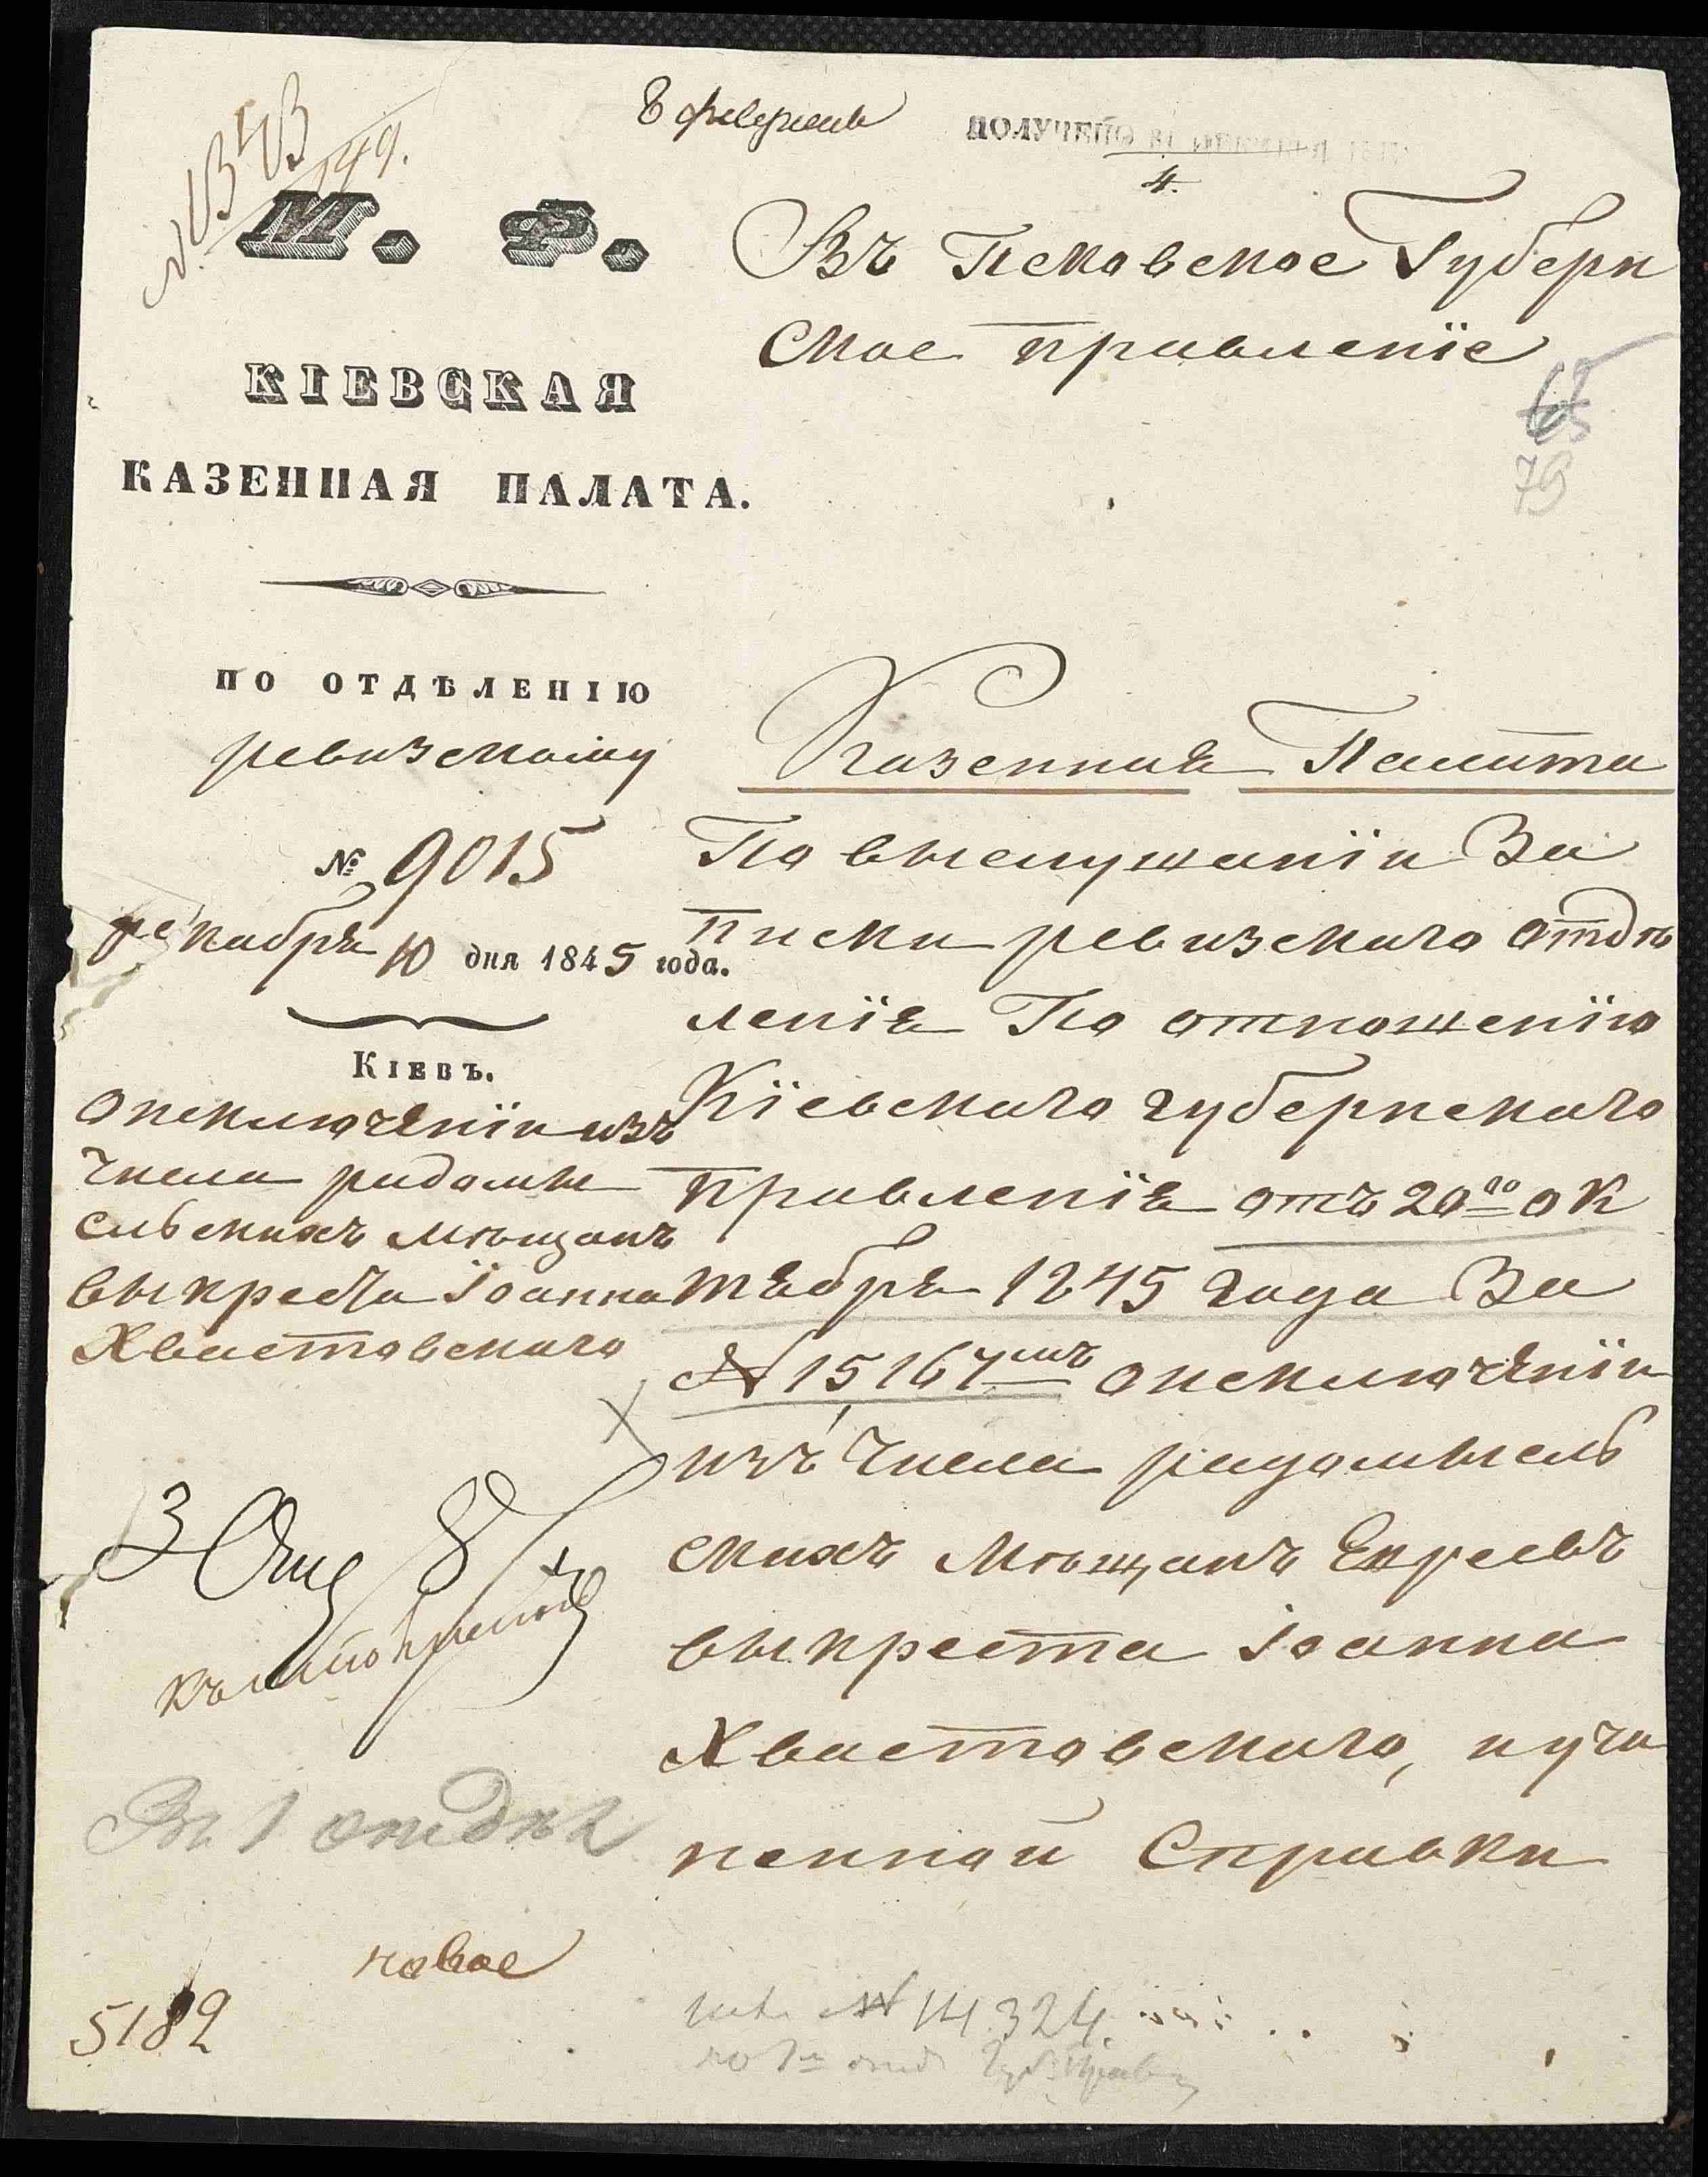 8 февраля
ПОЛУЧЕНО
4.
М. Ф.
КІЕВСКАЯ
КАЗЕННАЯ ПАЛАТА.
ПО ОТДѢЛЕНІЮ
ревизскому
№ 9015
декабря 10 дня 1845 года.
Кіевъ.
оисключеніи изъ
числа радомы
сльскихъ мѣщанъ
выкреста Іоанна
Хвастовскаго
Въ Псковское Губерн
ское правленіе
65
79
Казенная Палата
По выслушаніи За
писки ревизскаго отдѣ
ленія По отношенію
Кіевскаго губернскаго
правленія отъ 20го ок
тября 1845 года За
№ 15,167мъ оисключеніи
изъ числа радомысль
скихъ мѣщанъ Евреевъ
выкреста Іоанна
Хвастовскаго, иучи
ненной Справки
3 8
Въ 1 отдѣл
новое
5182
№ 14.324.